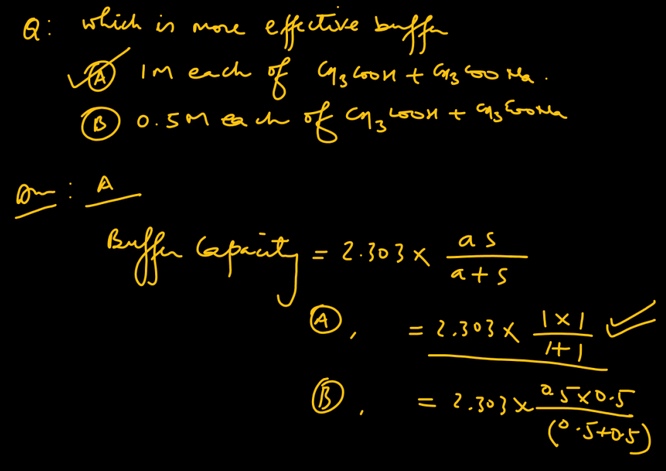 Q: which is more effective buffer
A 1M each of CH3COOH + CH3COONa.
B 0.5M each of CH3COOH + CH3COONa
Ans: A
Buffer Capacity = 2.303 × as/(a+s)
A, = 2.303 × (1×1)/(1+1)
B, = 2.303 × (0.5×0.5)/(0.5+0.5)